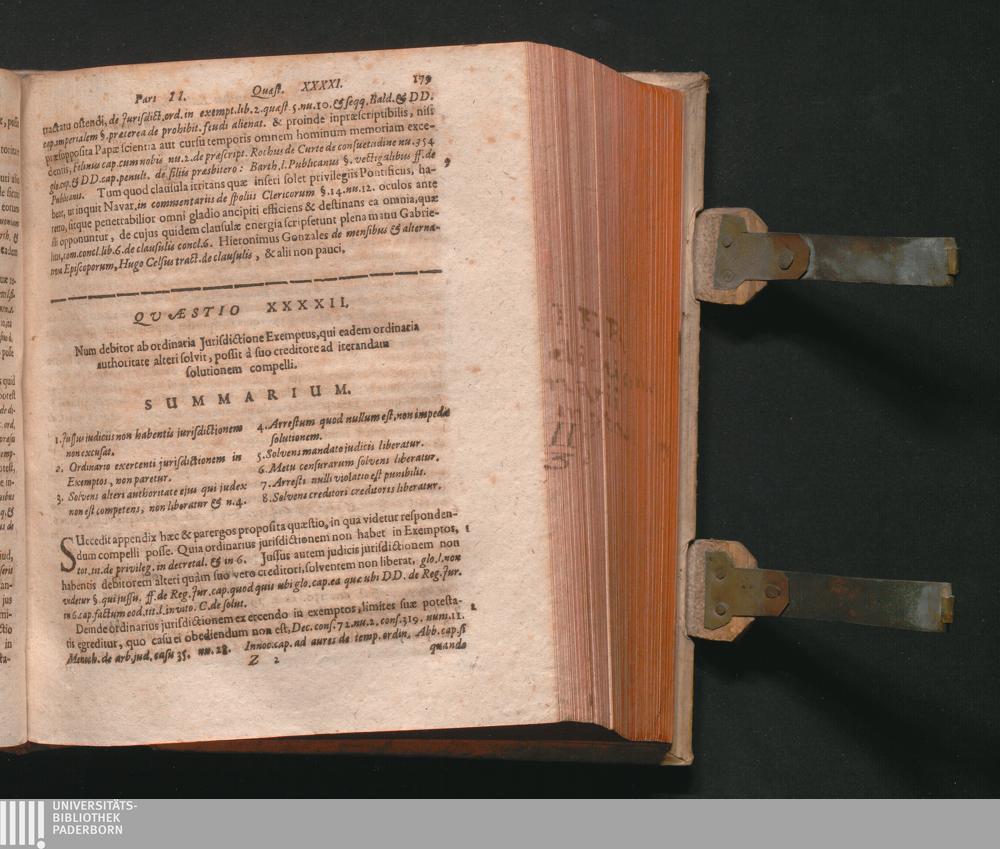 Pars II. Quæst. XXXXI. 179
tractatu ostendi, de Jurisdict. ord. in exempt. lib. 2. quæst. 5. nu. 10. & seqq. Bald. & DD.
cap. imperialem §. præterea de prohibit. feudi alienat. & proinde inpræscriptibilis, nisi
præsupposita Papæ scientia aut cursu temporis omnem hominum memoriam exce-
dentis, Felinus cap. cum nobis nu. 2. de præscript. Rochus de Curte de consuetudine nu. 354
glo. cap. & DD. cap. penult. de filiis præsbitero: Barth. l. Publicanus §. vectigalibus ff. de
Publicanis. Tum quod clausula irritans quæ inseri solet privilegiis Pontificus, ha-
bet, ut inquit Navar. in commentariis de spoliis Clericorum §. 14. nu. 12. oculos ante
retro, sitque penetrabilior omni gladio ancipiti efficiens & destinans ea omnia, quæ
illi opponuntur, de cujus quidem clausulæ energia scripserunt plena manu Gabrie-
lius, com. concl. lib. 6. de clausulis concl. 6. Hieronimus Gonzales de mensibus & alterna-
tiva Episcoporum, Hugo Celsus tract. de clausulis, & alii non pauci,
QVÆSTIO XXXXII.
Num debitor ab ordinaria Jurisdictione Exemptus, qui eadem ordinaria
authoritate alteri solvit, possit à suo creditore ad iterandam
solutionem compelli.
SUMMARIUM.
1. Jussus judicis non habentis jurisdictionem
non excusat.
2. Ordinario exercenti jurisdictionem in
Exemptos, non paretur.
3. Solvens alteri authoritate ejus qui judex
non est competens, non liberatur & n. 4.
4. Arrestum quod nullum est, non impedit
solutionem.
5. Solvens mandato judicis liberatur.
6. Metu censurarum solvens liberatur.
7. Arresti nulli violatio est punibilis.
8. Solvens creditori creditoris liberatur.
SUccedit appendix hæc & parergos proposita quæstio, in qua videtur responden-
dum compelli posse. Quia ordinarius jurisdictionem non habet in Exemptos, 1
tot. tit. de privileg. in decretal. & in 6. Jussus autem judicis jurisdictionem non
habentis debitorem alteri quàm suo vero creditori, solventem non liberat, glo. l. non
videtur §. qui jussu, ff. de Reg. Jur. cap. quod quis ubi glo. cap. ea quæ ubi DD. de Reg. Jur.
in 6. cap. factum eod. tit. l. invito. C. de solut.
Deinde ordinarius jurisdictionem excercendo in exemptos, limites suæ potesta- 2
tis egreditur, quo casu ei obediendum non est, Dec. cons. 72. nu. 2. cons. 319. num. 11.
Menoch. de arb. jud. casu 35. nu. 28. Innoc. cap. ad aures de temp. ordin. Abb. cap. si
Z 2 quando
UNIVERSITÄTS-
BIBLIOTHEK
PADERBORN